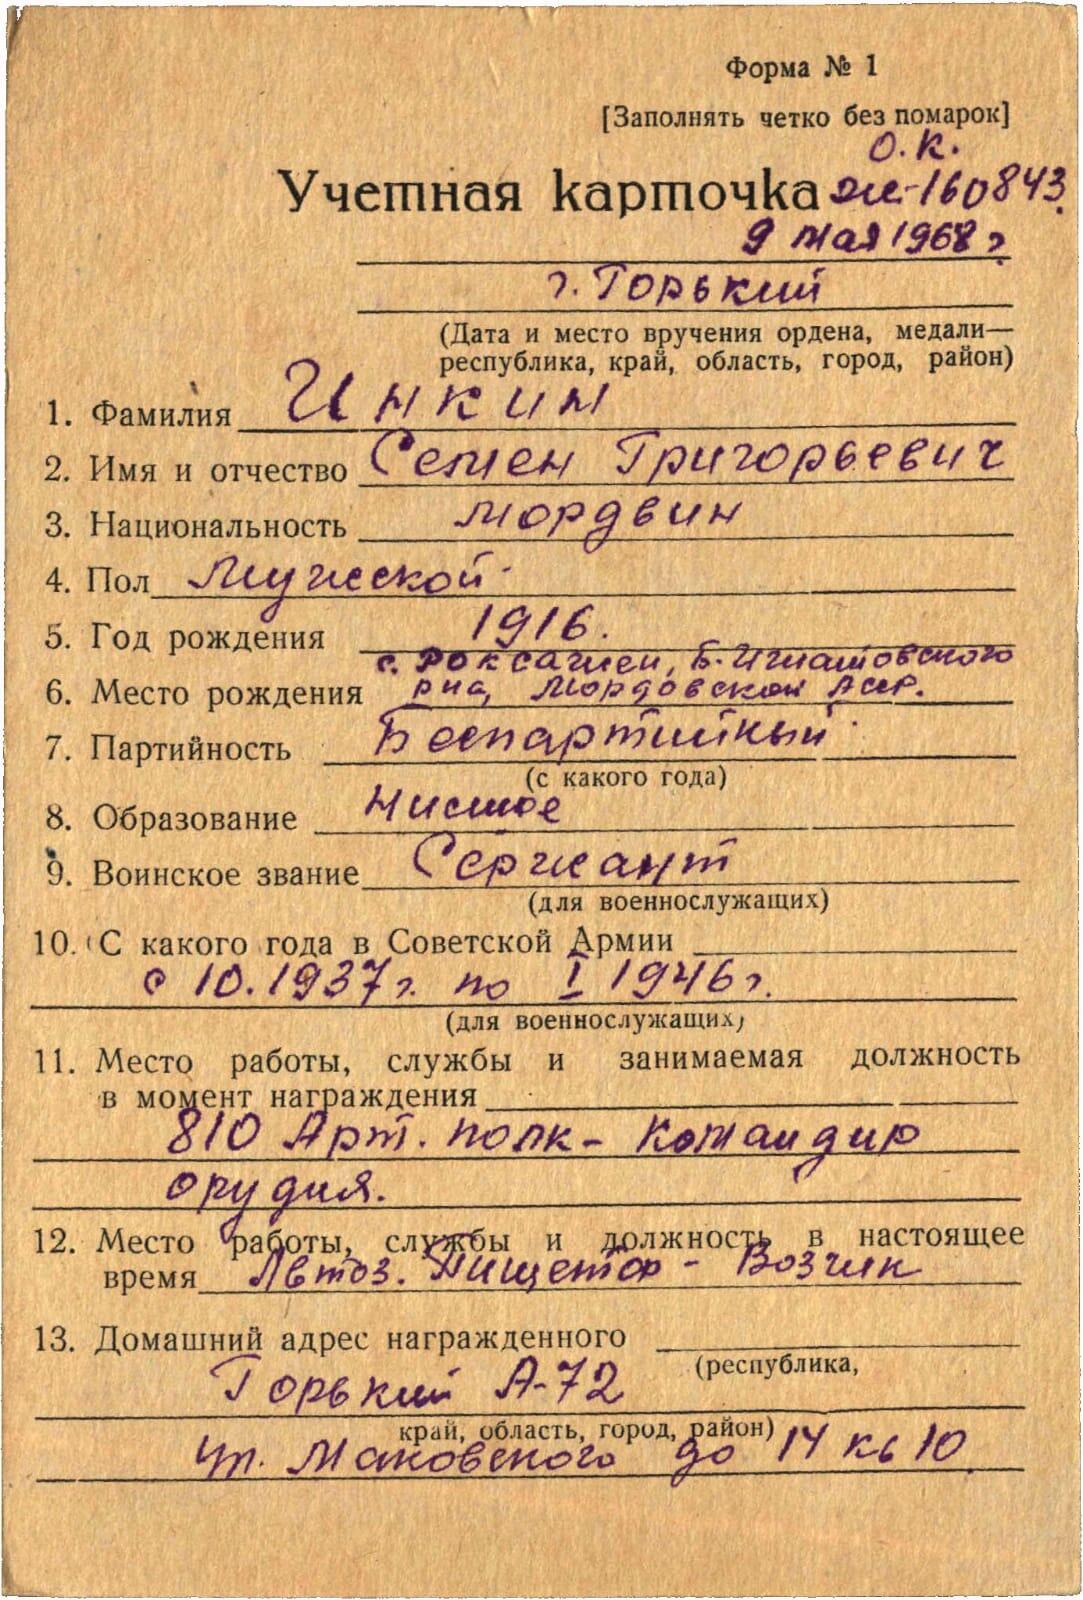 Форма № 1
[Заполнять четко без помарок]
О.К.
Учетная карточка 160843.
9 мая 1968 г.
г. Горький
(Дата и место вручения ордена, медали—
республика, край, область, город, район)
1. Фамилия Инкин
2. Имя и отчество Семен Григорьевич
3. Национальность мордвин
4. Пол Мужской
5. Год рождения 1916.
с. Б. Игнатовского
6. Место рождения рна, Мордовской Аср.
7. Партийность Беспартийный
(с какого года)
8. Образование Нисшое
9. Воинское звание Сержант
(для военнослужащих)
10. С какого года в Советской Армии
с 10.1937 г. по I 1946 г.
(для военнослужащих)
11. Место работы, службы и занимаемая должность
в момент награждения
810 Арт. полк - командир
орудия.
12. Место работы, службы и должность в настоящее
время Автоз. - Возчик
13. Домашний адрес награжденного
(республика,
Горький А-72
край, область, город, район)
ул. Маковского до 14 кв 10